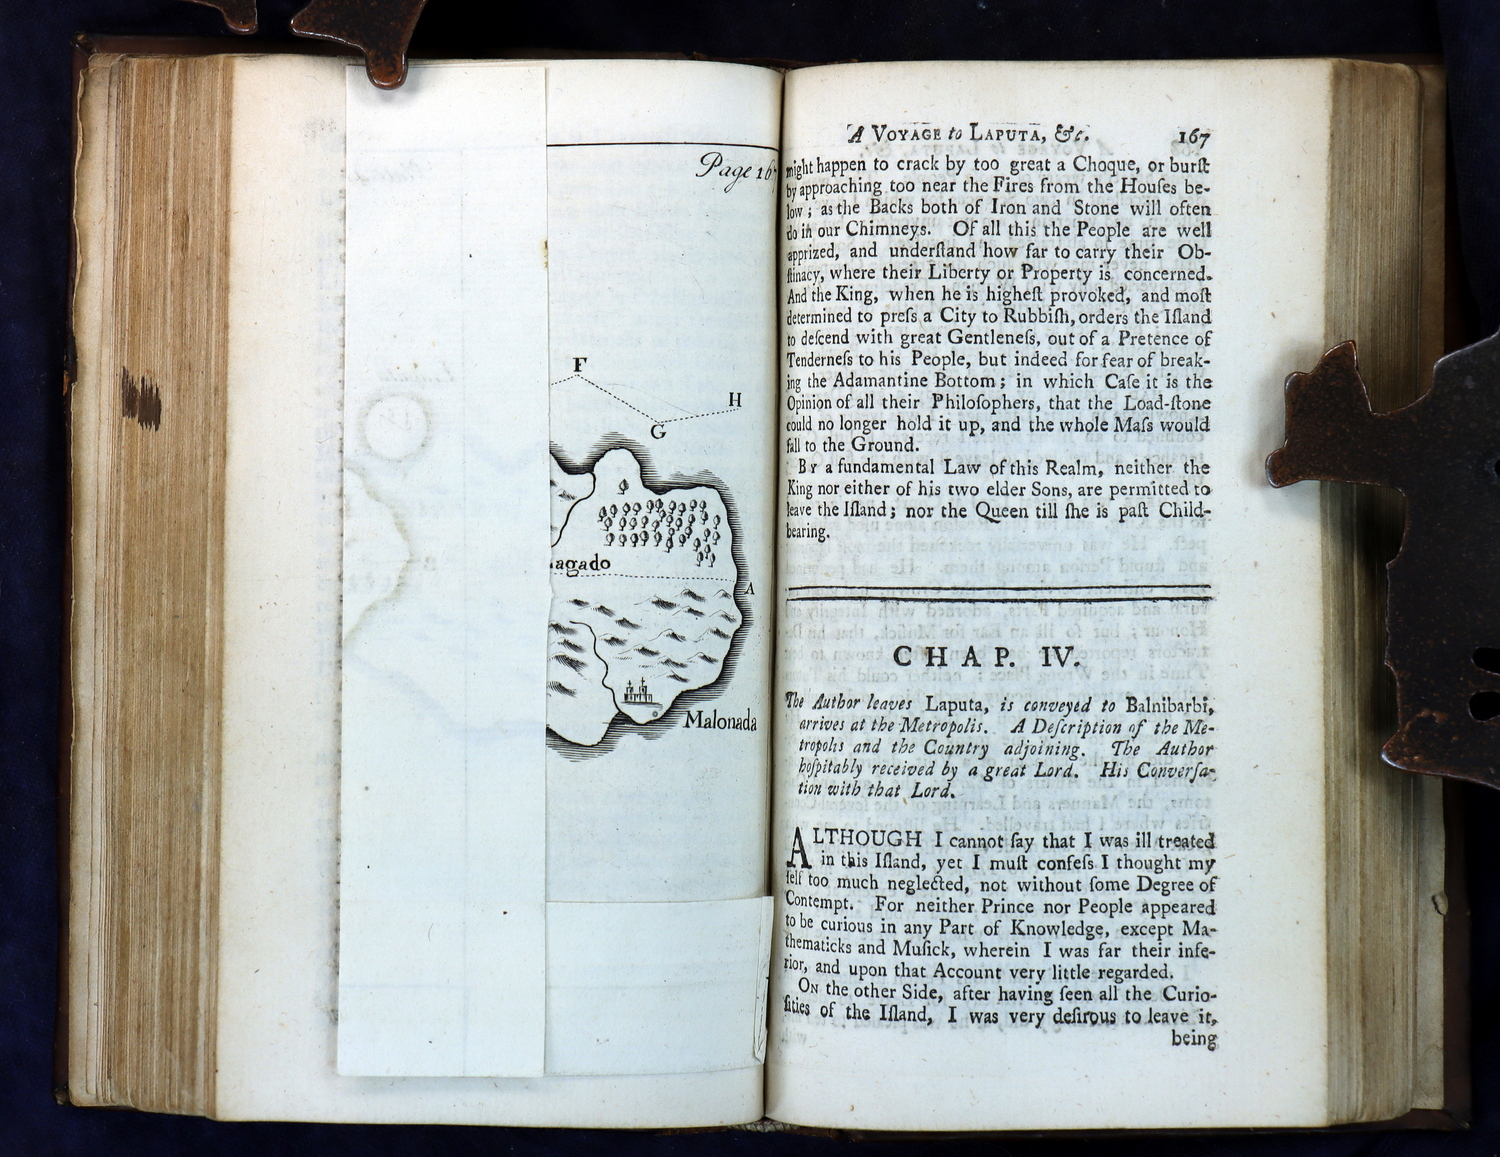 Page 16
F
H
G
agado
A
Malonada
A VOYAGE to LAPUTA, &c. 167
might happen to crack by too great a Choque, or burſt
by approaching too near the Fires from the Houſes be-
low; as the Backs both of Iron and Stone will often
do in our Chimneys. Of all this the People are well
apprized, and underſtand how far to carry their Ob-
ſtinacy, where their Liberty or Property is concerned.
And the King, when he is higheſt provoked, and moſt
determined to preſs a City to Rubbiſh, orders the Iſland
to deſcend with great Gentleneſs, out of a Pretence of
Tenderneſs to his People, but indeed for fear of break-
ing the Adamantine Bottom; in which Caſe it is the
Opinion of all their Philoſophers, that the Load-ſtone
could no longer hold it up, and the whole Maſs would
fall to the Ground.
BY a fundamental Law of this Realm, neither the
King nor either of his two elder Sons, are permitted to
leave the Iſland; nor the Queen till ſhe is paſt Child-
bearing.
CHAP. IV.
The Author leaves Laputa, is conveyed to Balnibarbi,
arrives at the Metropolis. A Deſcription of the Me-
tropolis and the Country adjoining. The Author
hoſpitably received by a great Lord. His Converſa-
tion with that Lord.
ALTHOUGH I cannot ſay that I was ill treated
in this Iſland, yet I muſt confeſs I thought my
ſelf too much neglected, not without ſome Degree of
Contempt. For neither Prince nor People appeared
to be curious in any Part of Knowledge, except Ma-
thematicks and Muſick, wherein I was far their infe-
rior, and upon that Account very little regarded.
ON the other Side, after having ſeen all the Curio-
ſities of the Iſland, I was very deſirous to leave it,
being